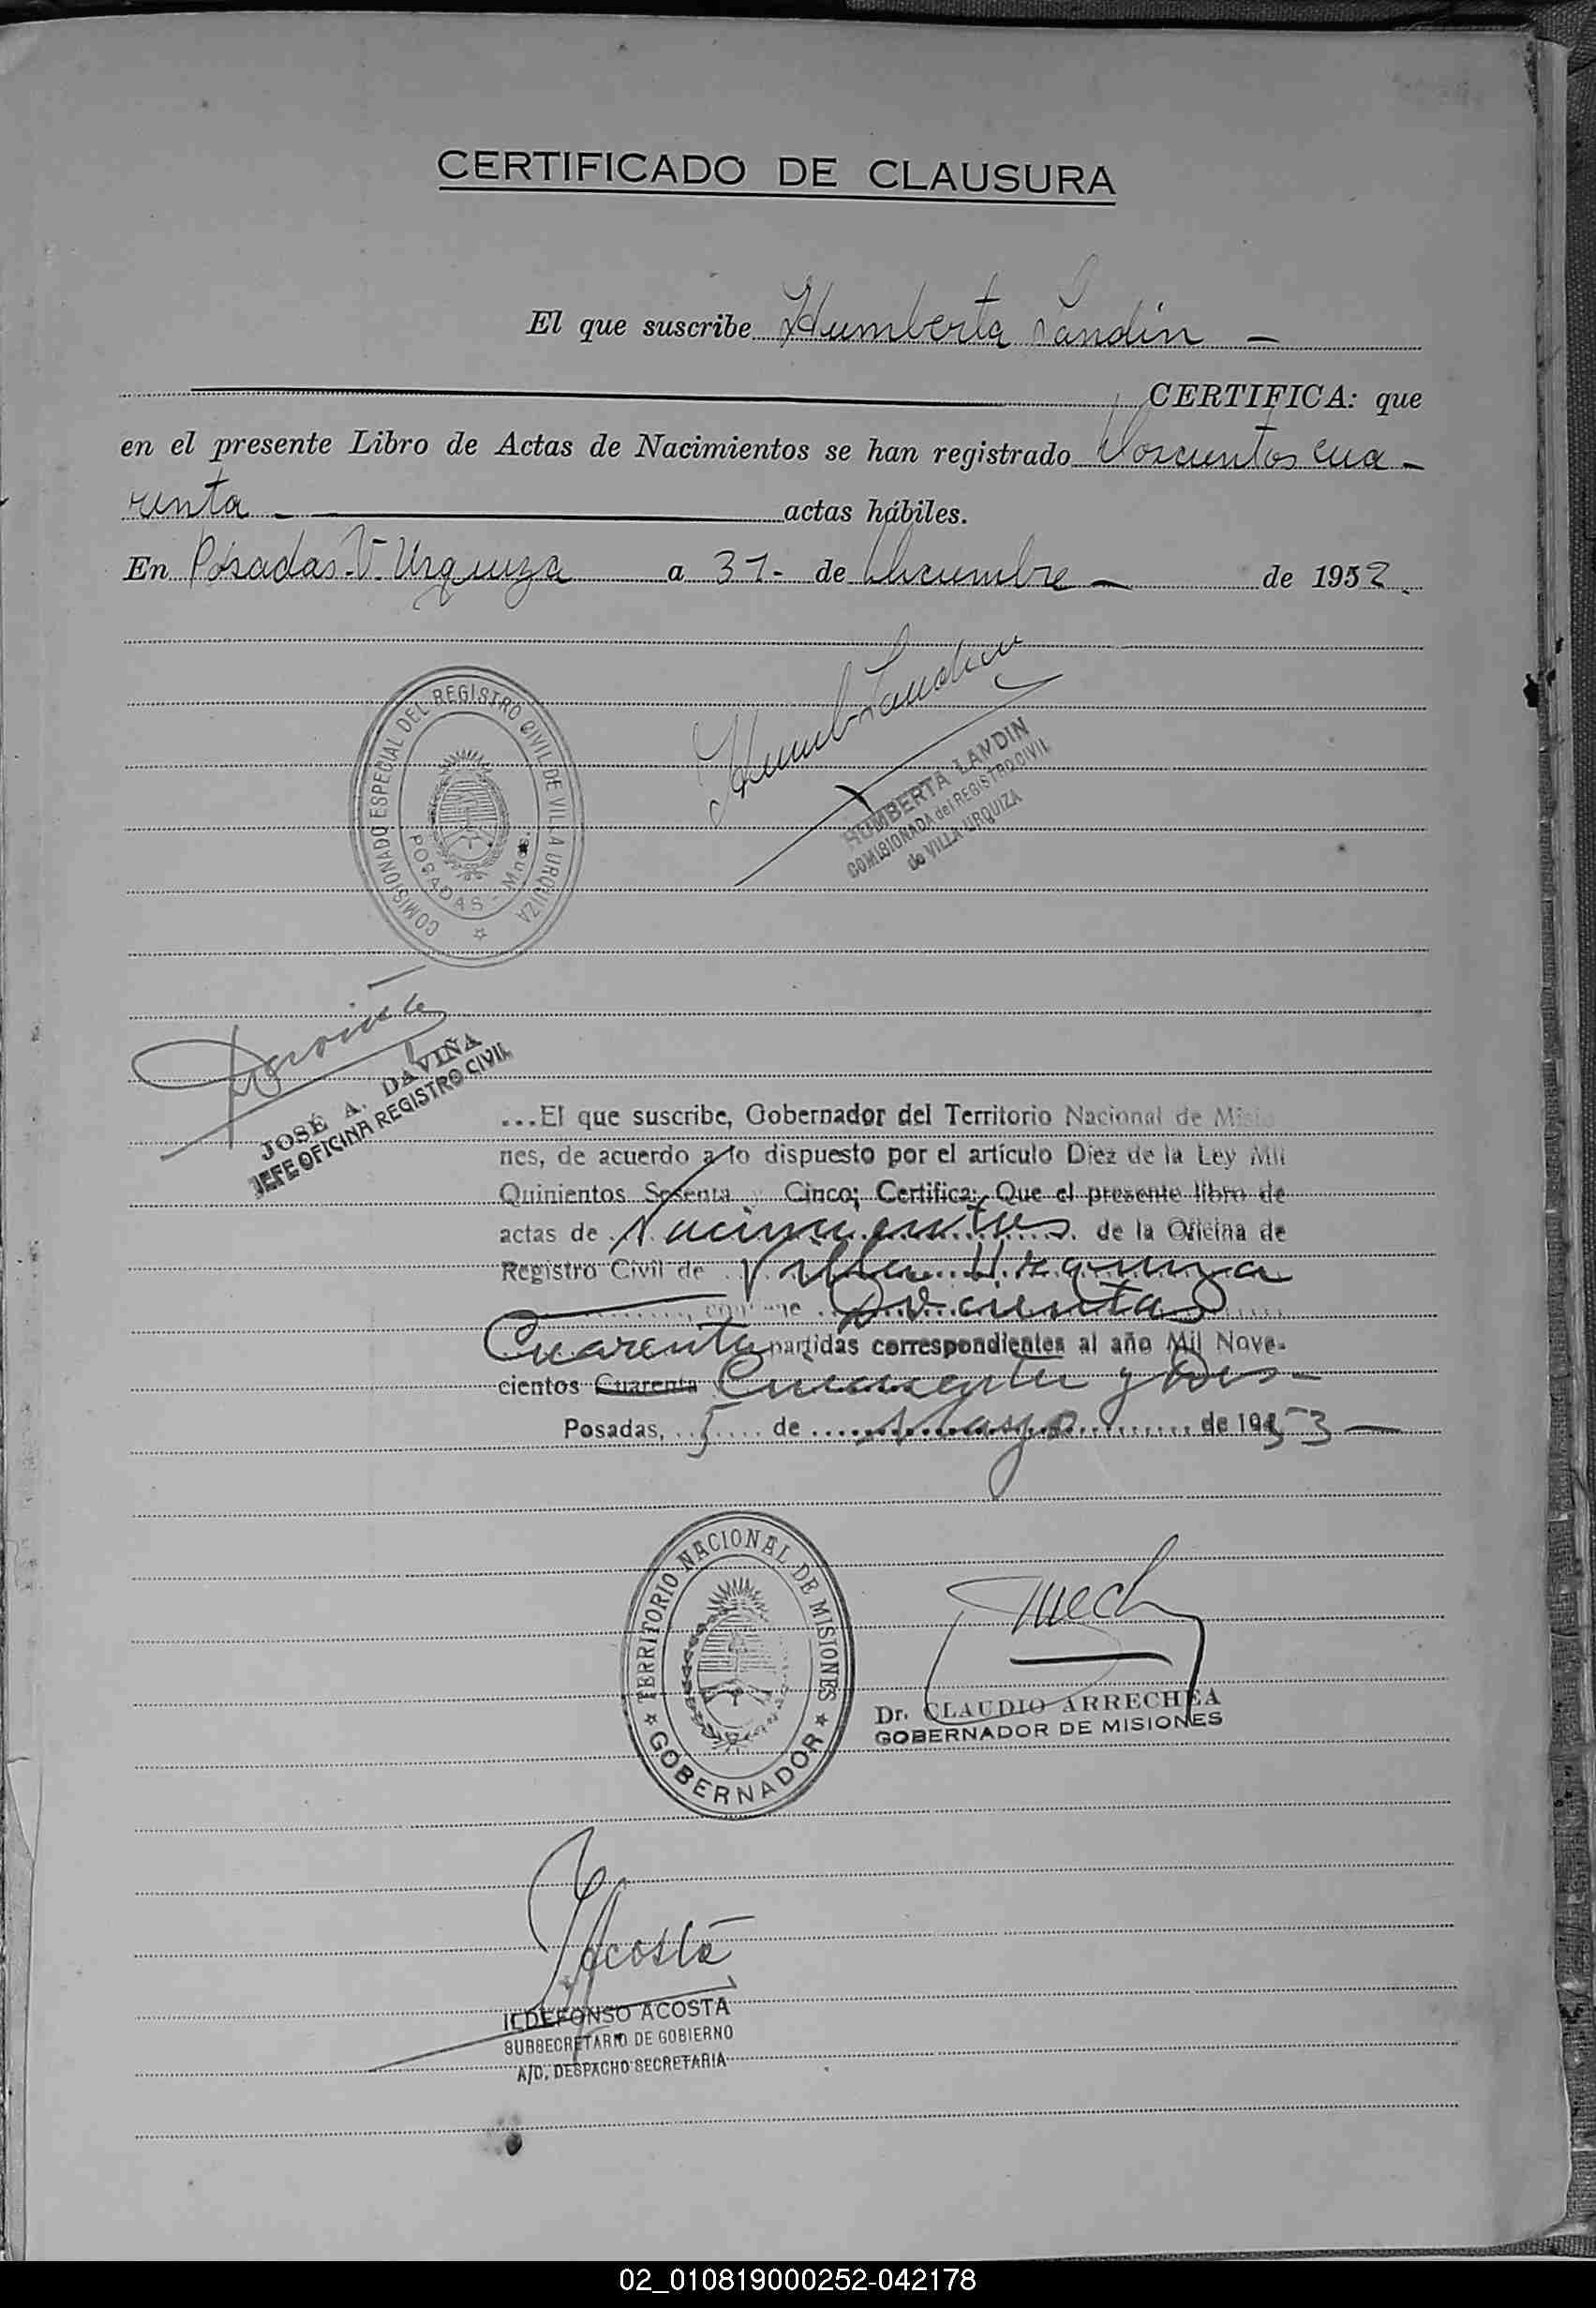 CERTIFICADO DE CLAUSURA
El que suscribe Humberta Landin -
CERTIFICA: que
en el presente Libro de Actas de Nacimientos se han registrado Doscientos cua-
renta - actas hábiles.
En Posadas-V. Urquiza a 31- de Diciembre - de 1952.
COMISIONADO ESPECIAL DEL REGISTRO CIVIL DE VILLA URQUIZA
POSADAS - Mnes.
Humb Landin
HUMBERTA LANDIN
COMISIONADA del REGISTRO CIVIL
de VILLA URQUIZA
Daviña
JOSÉ A. DAVIÑA
JEFE OFICINA REGISTRO CIVIL
...El que suscribe, Gobernador del Territorio Nacional de Misio
nes, de acuerdo a lo dispuesto por el artículo Diez de la Ley Mil
Quinientos Sesenta y Cinco; Certifica: Que el presente libro de
actas de Nacimientos de la Oficina de
Registro Civil de Villa Urquiza
contiene Doscientas
Cuarenta partidas correspondientes al año Mil Nove-
cientos Cuarenta Cincuenta y Dos -
Posadas, 5 de Mayo de 1953 -
TERRITORIO NACIONAL DE MISIONES
GOBERNADOR
Dr. CLAUDIO ARRECHEA
GOBERNADOR DE MISIONES
Acosta
ILDEFONSO ACOSTA
SUBSECRETARIO DE GOBIERNO
A/C. DESPACHO SECRETARIA
02_010819000252-042178